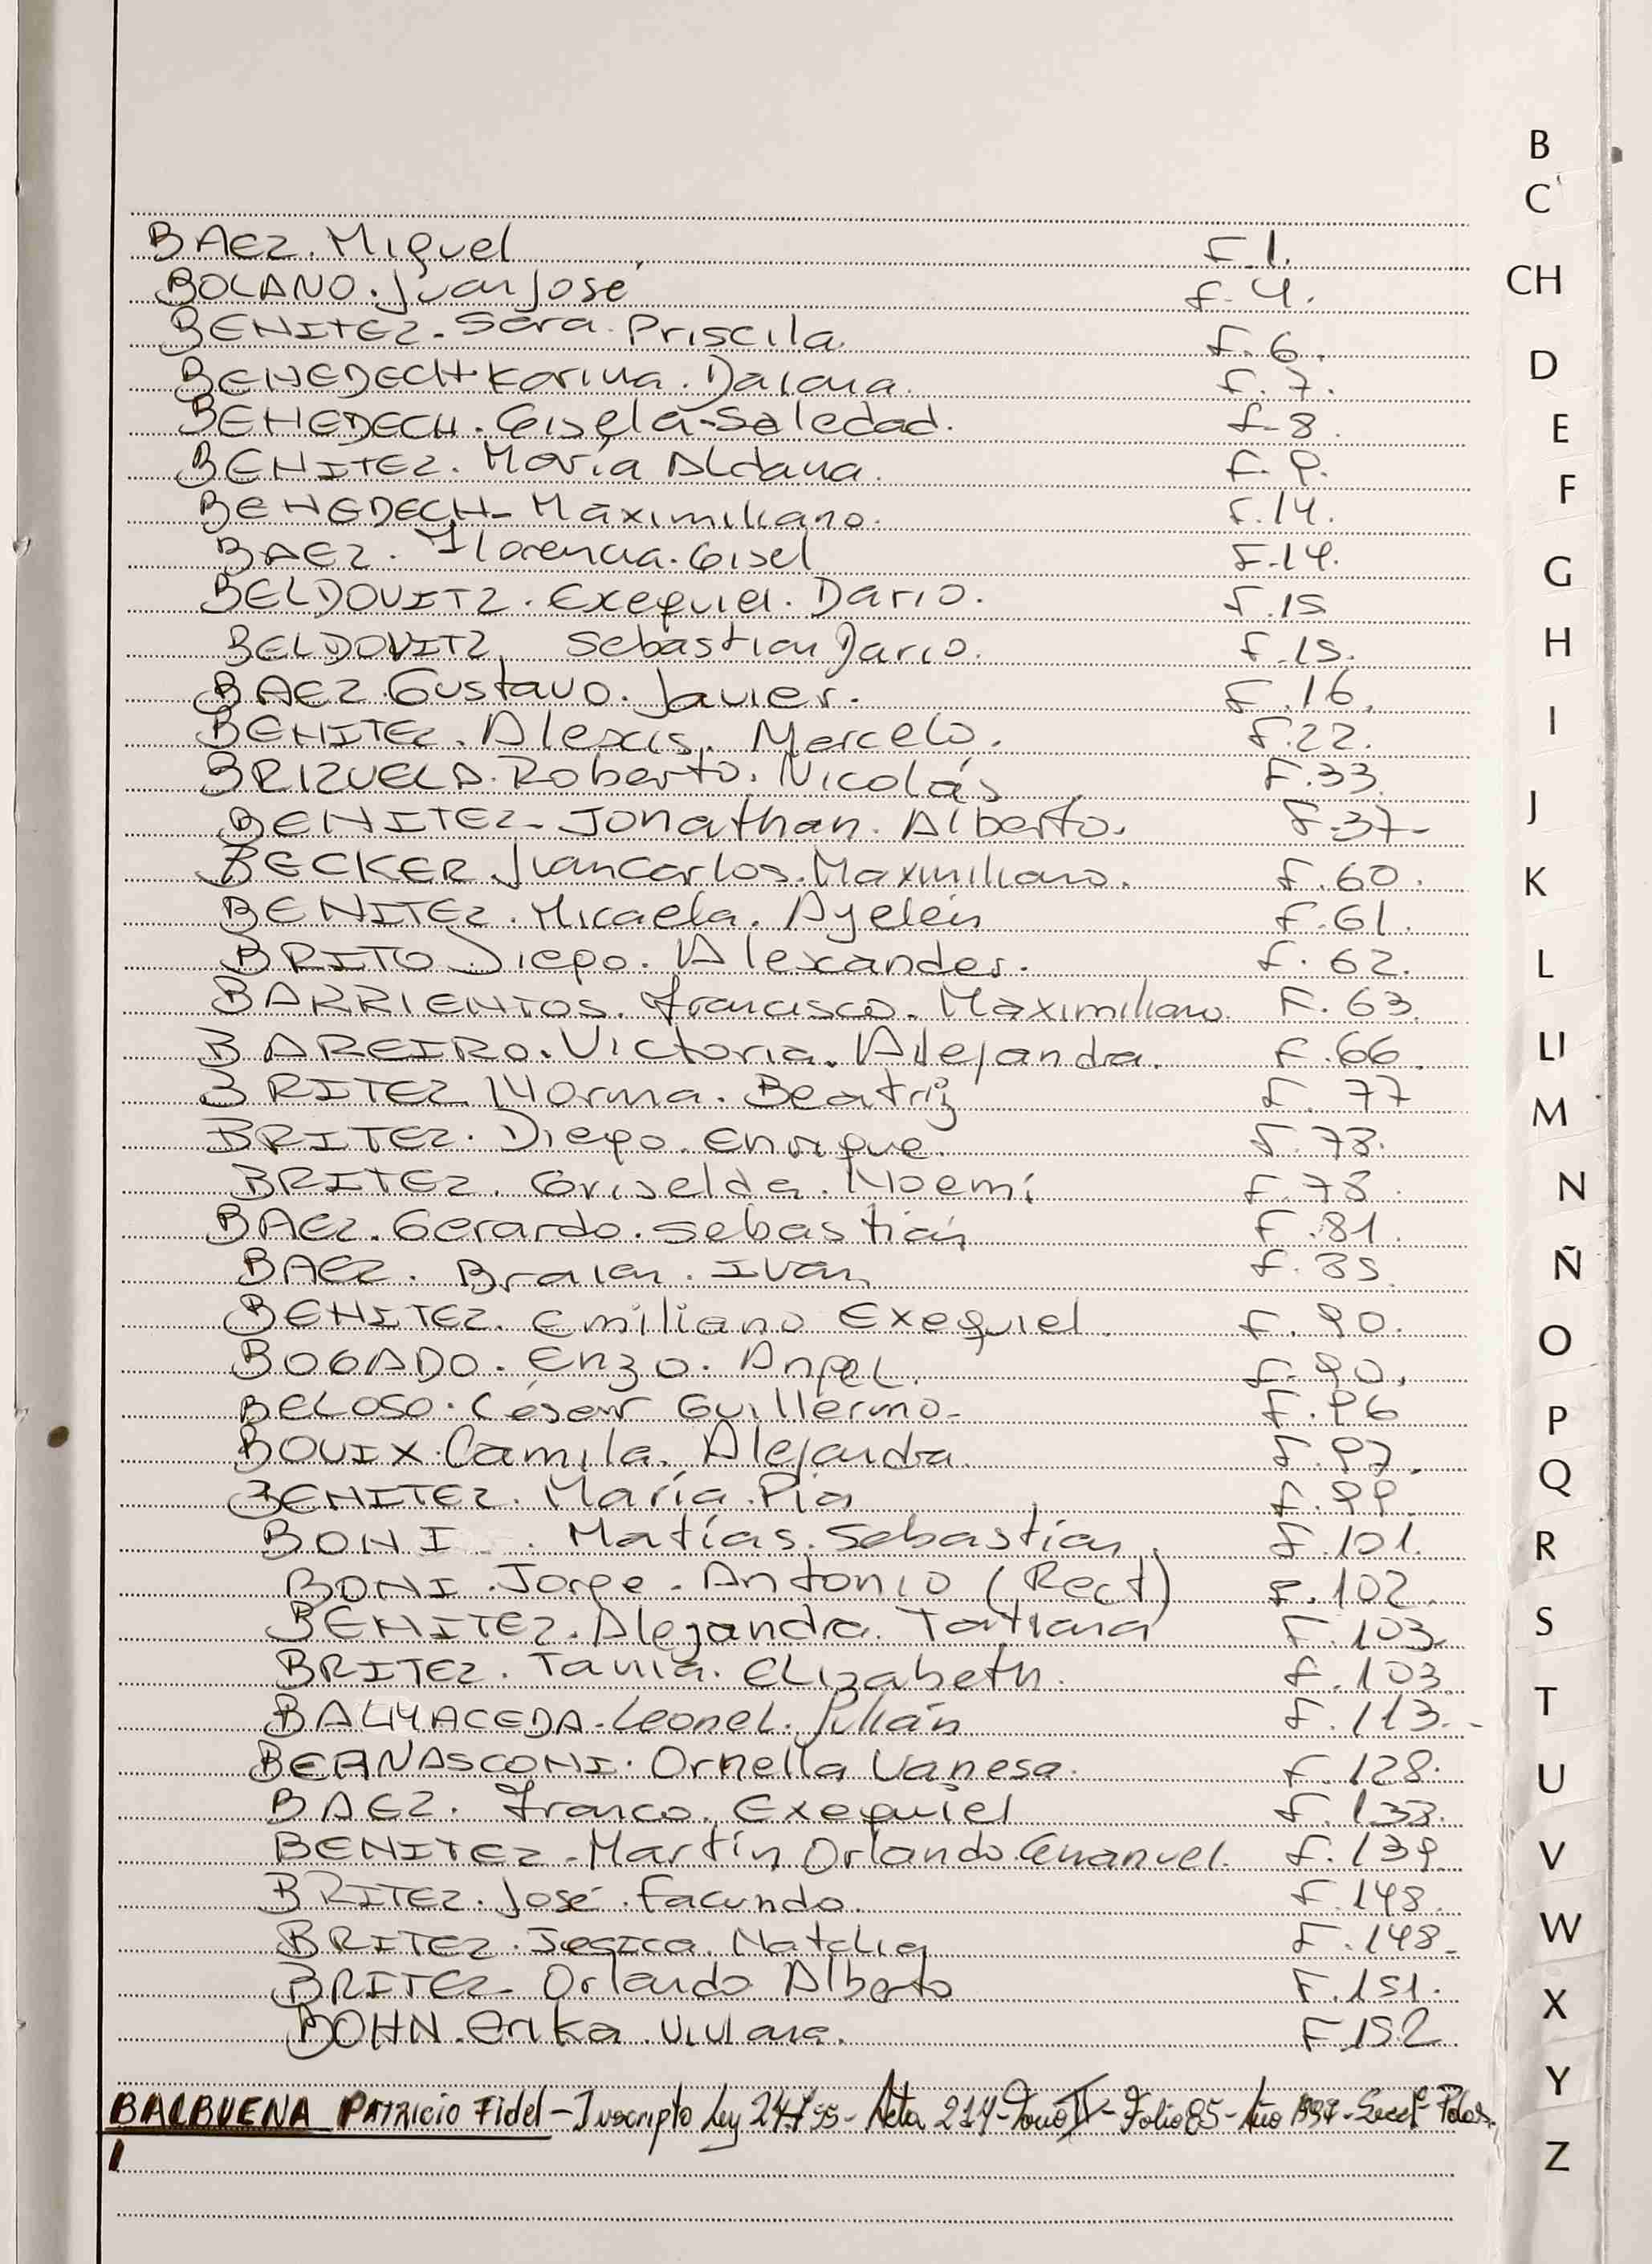 BAEZ. Miguel F.1.
BOLANO. Juan José F.4.
BENITEZ. Sara. Priscila. F.6.
BENEDECH Karina. Daiana. F.7.
BENEDECH. Gisela Soledad. F.8.
BENITEZ. María Aldana. F.9.
BENEDECH- Maximiliano. F.14.
BAEZ. Florencia. Gisel F.14.
BELDOVITZ. Exequiel. Dario. F.15
BELDOVITZ Sebastian Dario. F.15.
BAEZ Gustavo. Javier. F.16.
BENITEZ. Alexis. Marcelo. F.22.
BRIZUELA. Roberto. Nicolás F.33.
BENITEZ- Jonathan. Alberto. F.37-
BECKER. Juan Carlos. Maximiliano. F.60.
BENITEZ. Micaela. Ayelén F.61.
BRITO Diego. Alexander. F.62.
BARRIENTOS. Francisco. Maximiliano. F.63.
BAREIRO. Victoria. Alejandra. F.66.
BRITEZ. Norma. Beatriz F.77
BRITEZ. Diego. Enrique. F.78.
BRITEZ. Griselda. Noemí F.78.
BAEZ. Gerardo. Sebastián F.81.
BAEZ. Braian. Ivan F.85.
BENITEZ. Emiliano Exequiel. F.90.
BOGADO. Enzo. Angel. F.90.
BELOSO. César Guillermo- F.96
BOUIX. Camila. Alejandra. F.97.
BENITEZ. María. Pía F.99.
BONI. Matías. Sebastián. F.101.
BONI. Jorge. Antonio (Rect) F.102.
BENITEZ. Alejandra. Tatiana F.103.
BRITEZ. Tania. Elizabeth. F.103.
BALMACEDA- Leonel. Julián F.113.-
BERNASCONI. Ornella Vanesa. F.128.
BAEZ. Franco. Exequiel F.133.
BENITEZ- Martín Orlando Emanuel. F.139.
BRITEZ. José. Facundo. F.148.
BRITEZ. Jesica. Natalia F.148-
BRITEZ- Orlando Alberto F.151.
BOHN. Erika. Viviana. F.152
BALBUENA Patricio Fidel- Inscripto Ley 24755- Acta 214- Tomo II- Folio 85- Año 1997-
B
C
CH
D
E
F
G
H
I
J
K
L
Ll
M
N
Ñ
O
P
Q
R
S
T
U
V
W
X
Y
Z